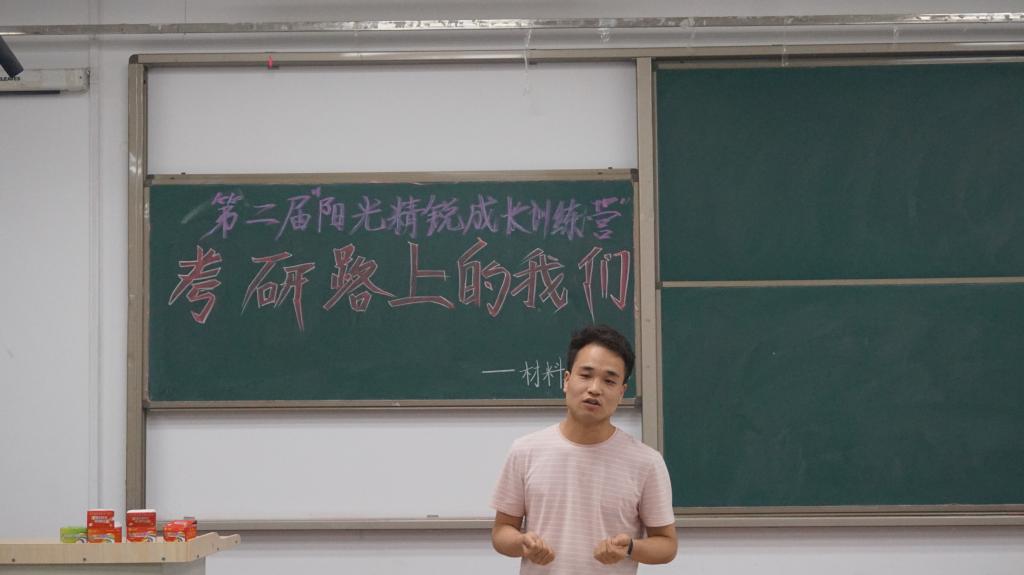 第二届"阳光精锐成长训练营"
考研路上的我们
——材料